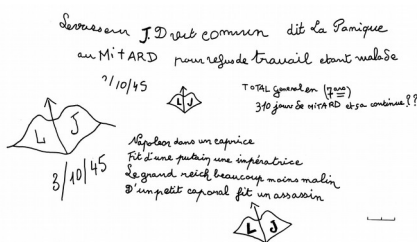 Levasseur J. Droit comun dit La Panique
au MiTARD pour refus de travail etant malade
2/10/45
TOTAL General en (7 ans)
310 jours de MiTARD et sa continue ! ??
L J
L J
3/10/45
Napoleon dans un caprice
Fit d'une putain une impératrice
Le grand reich beaucoup moins malin
D'un petit caporal fit un assassin
L J